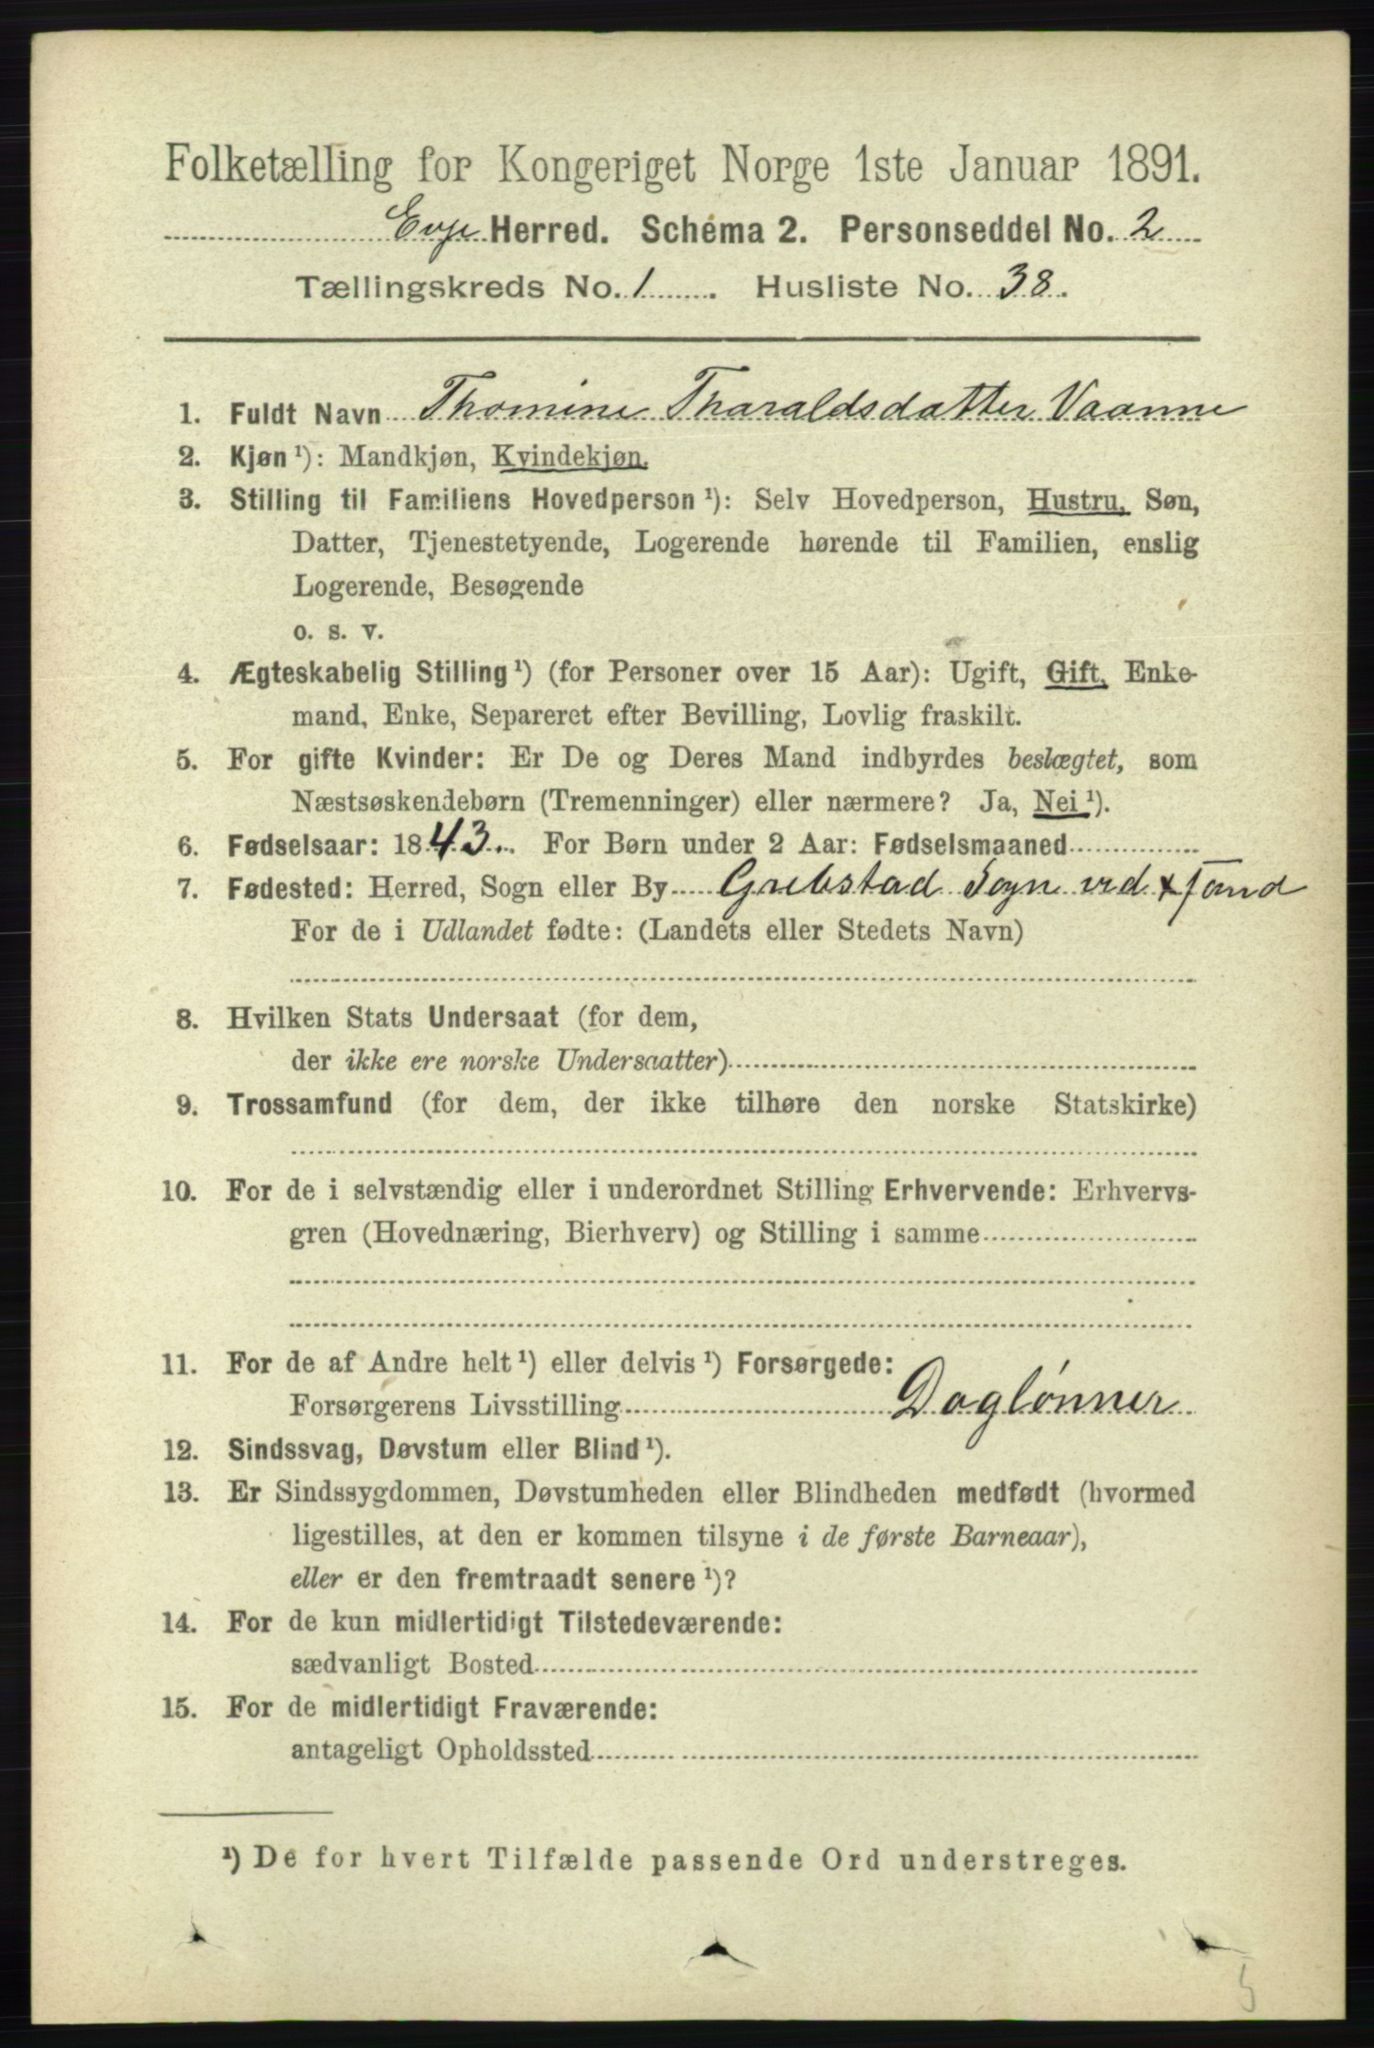 Folketælling for Kongeriget Norge 1ste Januar 1891.
Evje Herred. Schema 2. Personseddel No. 2
Tællingskreds No. 1. Husliste No. 38.
1. Fuldt Navn Thomine Tharaldsdatter Vaanne
2. Kjøn ¹): Mandkjøn, Kvindekjøn.
3. Stilling til Familiens Hovedperson ¹): Selv Hovedperson, Hustru, Søn,
Datter, Tjenestetyende, Logerende hørende til Familien, enslig
Logerende, Besøgende
o. s. v.
4. Ægteskabelig Stilling ¹) (for Personer over 15 Aar): Ugift, Gift, Enke-
mand, Enke, Separeret efter Bevilling, Lovlig fraskilt.
5. For gifte Kvinder: Er De og Deres Mand indbyrdes beslægtet, som
Næstsøskendebørn (Tremenninger) eller nærmere? Ja, Nei ¹).
6. Fødselsaar: 1843. For Børn under 2 Aar: Fødselsmaaned
7. Fødested: Herred, Sogn eller By Grebstad Sogn ved
For de i Udlandet fødte: (Landets eller Stedets Navn)
8. Hvilken Stats Undersaat (for dem,
der ikke ere norske Undersaatter)
9. Trossamfund (for dem, der ikke tilhøre den norske Statskirke)
10. For de i selvstændig eller i underordnet Stilling Erhvervende: Erhvervs-
gren (Hovednæring, Bierhverv) og Stilling i samme
11. For de af Andre helt ¹) eller delvis ¹) Forsørgede:
Forsørgerens Livsstilling Daglønner
12. Sindssvag, Døvstum eller Blind ¹).
13. Er Sindssygdommen, Døvstumheden eller Blindheden medfødt (hvormed
ligestilles, at den er kommen tilsyne i de første Barneaar),
eller er den fremtraadt senere ¹)?
14. For de kun midlertidigt Tilstedeværende:
sædvanligt Bosted
15. For de midlertidigt Fraværende:
antageligt Opholdssted
¹) De for hvert Tilfælde passende Ord understreges.
5